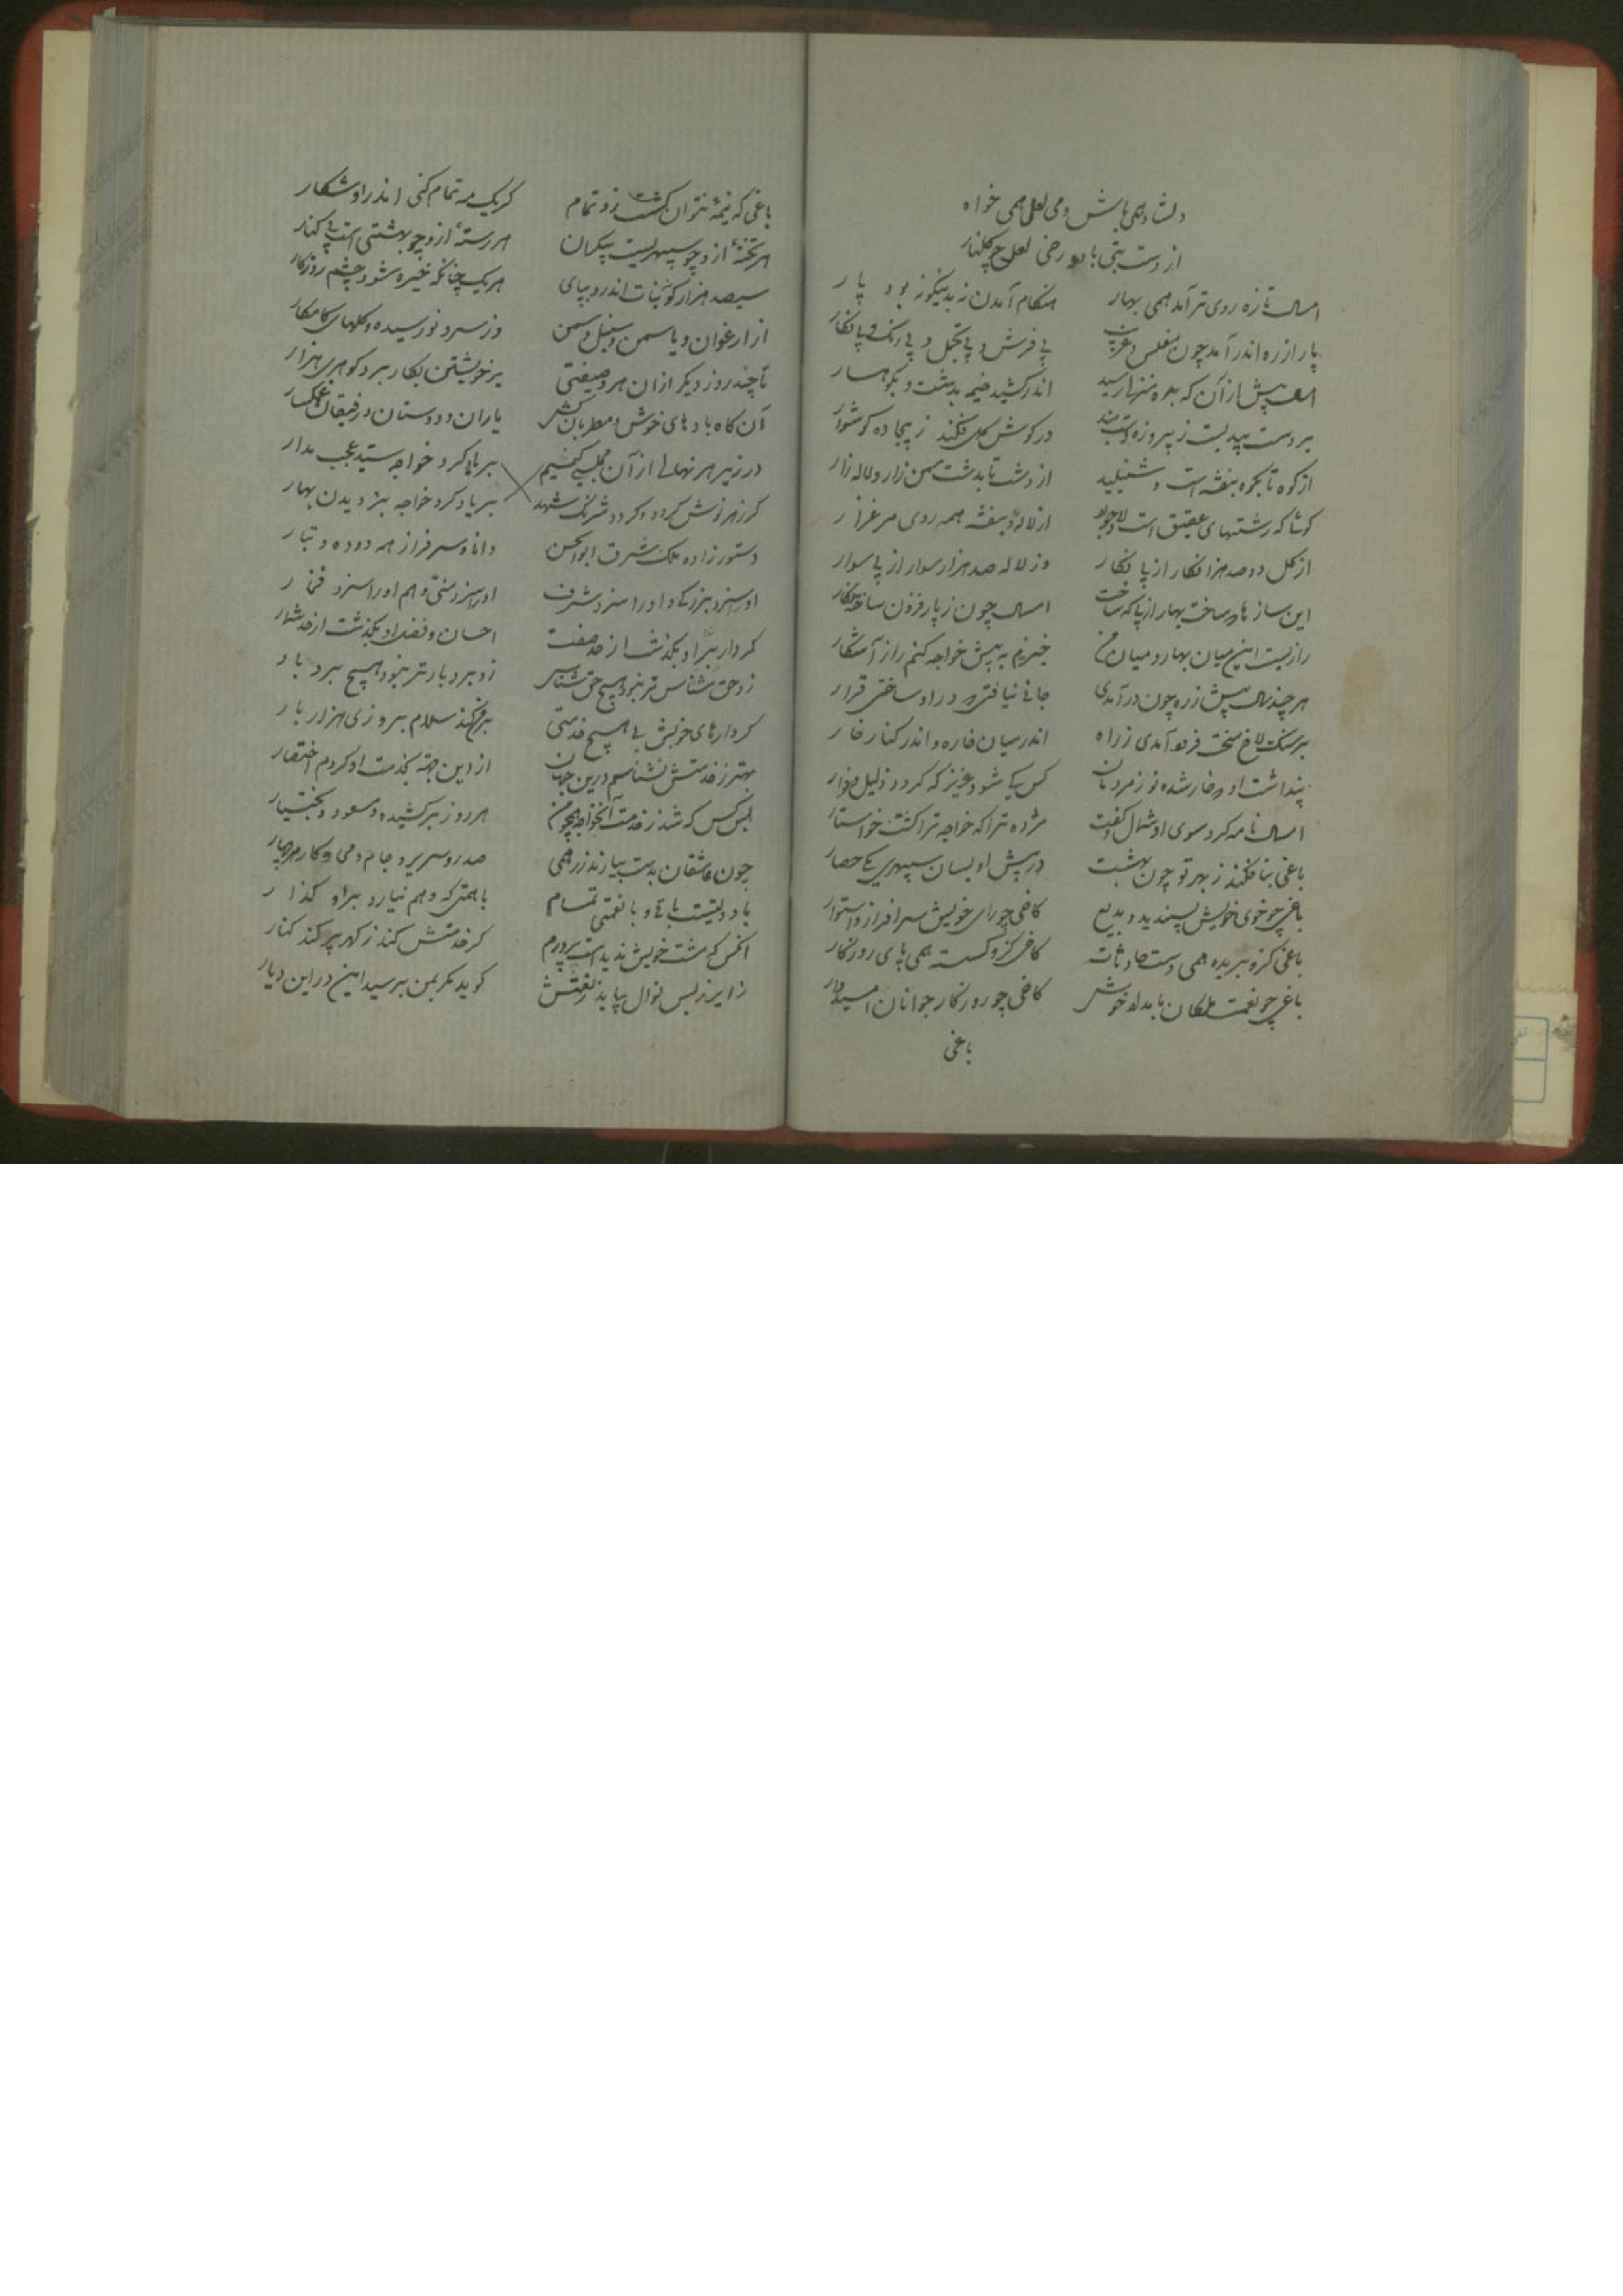 دلشاد همی باش و می لعل همی خواه
از دست بتی با دو رخی لعل چو گلنار
امسال تازه روی تر آمد همی بهار هنگام آمدن نه بدینگونه بود پار
پار از ره اندر آمد چون مفلس غریب بی فرش و بی تجمل و بی رنگ و پانکار
امسال پیش از آن که بده منزل رسید اندر کشید خیمه بدشت و بکوهسار
بر دست بید بست ز پیروزه دست بند در کوش کل فکند ز بیجاده کوشوار
از کوه تا بکوه بنفشه است و شنبلید از دشت تا بدشت سمن زار و لاله زار
کوئی که رشتهای عقیق است و لاجورد از لاله و بنفشه همه روی مرغزار
از کل دو صد هزار نکار از پی نکار وز لاله صد هزار سوار از پی سوار
این سازها که ساخت بهار از پی که ساخت امسال چون ز پار فزون ساخت کار
رازیست این میان بهار و میان من خیزم به پیش خواجه کنم راز آشکار
هر چند سال پیش ز ره چون درآمدی جائی نیافتی که در او ساختی قرار
بر سنک لاخ سخت فرود آمدی ز راه اندر میان خاره و اندر کنار خار
پنداشت او که خار شده نزد مردمان کس کی شود عزیز که کردد ذلیل و خوار
امسال نامه کرد سوی او شمال و کفت مژده ترا که خواجه ترا کشت خواستار
باغی بنا فکند ز بهر تو چون بهشت در پیش او بسان سپهری یکی حصار
باغی چو خوی خویش پسندیده و بدیع کاخی چو رای خویش سرافراز و استوار
باغی کز و بریده همی دست حادثات کاخی کز و کسسته همی پای روزکار
باغی چو نعمت ملکان با مداد خوش کاخی چو روزکار جوانان امیدوار
باغی
باغی که نیمهٔ نتوان کشت زو تمام کر یک مه تمام کنی اندر او شکار
هر تختهٔ از و چو سپهریست بیکران هر رستهٔ از و چو بهشتی است بی کنار
سیصد هزار کونه نبات اندرو بپای هر یک چنانکه خیره شود چشم روزکار
از ارغوان و یاسمن و سنبل و سمن وز سرو نورسیده و کلهای کامکار
تا چند روز دیکر از ان هر وصیفتی بر خویشتن بکار برد کوهری هزار
آن کاه باده های خوش و مطربان کش یاران و دوستان و رفیقان غمکسار
در زیر هر نهالی از آن مجلسی کنیم بر یاد کرد خواجه سید عجب مدار
کر زهر نوش کردد و کردد شرنک شهد بر یاد کرد خواجه بر دیدن بهار
دستور زاده ملک شرق ابوالحسن دانا و سرفراز همه دوده و تبار
او را سزد بزرکی و او را سزد شرف او را سزد منی و هم او را سزد فخار
کردار بر او بکذشت از حد صفت احسان و فضل او بکذشت از حد شمار
زو حق شناس تر نبود هیچ حق شناس زو بردبار تر نبود هیچ بردبار
کردارهای خویش بی هیچ خدمتی بر من کند سلام بروزی هزار بار
بهتر ز خدمتش نشناسم در این جهان از این جهة بخدمت او کردم اختصار
بس کس که شد ز خدمت آن خواجه همچو من هر روز برکشیده و مسعود و بختیار
چون عاشقان بدست بیارند زر همی صدر و سریر و جام و می و کار هر چهار
با دولتیست باقی و با نعمتی تمام با همتی که وهم نیارد براو کذار
آنکس که شست خویش ندیده است پر درم کر خدمتش کند ز کهر پر کند کنار
زایر ز بس نوال بیابد ز نعمتش کوید مکر بمن برسید این در این دیار